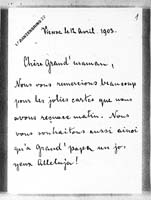 1
Vienne le 12 Avril. 1903.
Chère Grand' maman,
Nous vous remercions beaucoup
pour les jolies cartes que nous
avons reçues matin. Nous
vous souhaitons aussi ainsi
qu'à Grand' papa un jo-
yeux Alleluja!